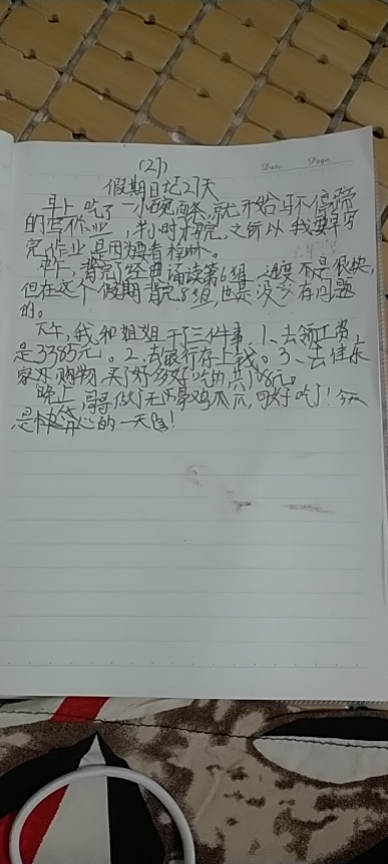 (27)
Date Page
假期日记27天
早上吃了一小碗面条,就开始马不停蹄
的写作业,半小时才写完,之所以我要写
完作业是因为要看
中午,背完了经典诵读第6组,速度不是很快,
但在这个假期背完8组,也是没有问题
的。
下午,我和姐姐干了三件事,1、去领工资,
是3385元。2、去银行存上钱。3、去佳乐
家购物,买了好多好吃的,共108元。
晚上,哥哥做了无骨鸡爪,可好吃了!今天
是开心的一天!